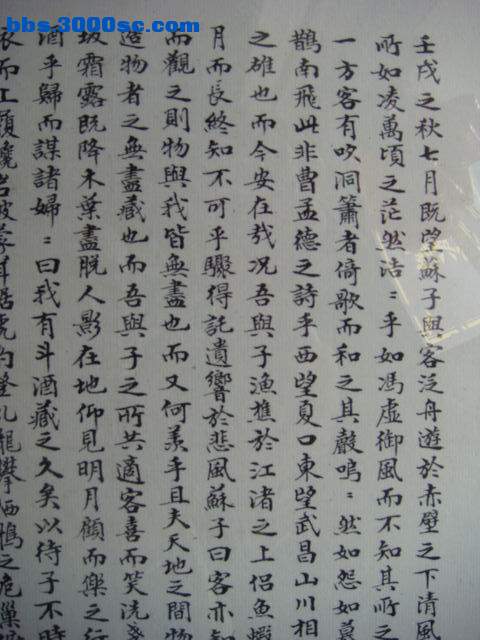 bbs.3000sc.com
壬戌之秋七月既望蘇子與客泛舟遊於赤壁之下清風
所如凌萬頃之茫然浩〻乎如馮虛御風而不知其所之
一方客有吹洞簫者倚歌而和之其聲嗚〻然如怨如慕
鵲南飛此非曹孟德之詩乎西望夏口東望武昌山川相
之雄也而今安在哉况吾與子漁樵於江渚之上侶魚蝦
月而長終知不可乎驟得託遺響於悲風蘇子曰客亦知
而觀之則物與我皆無盡也而又何羨乎且夫天地之間物
造物者之無盡藏也而吾與子之所共適客喜而笑洗盞
坂霜露既降木葉盡脫人影在地仰見明月顧而樂之行
酒乎歸而謀諸婦〻曰我有斗酒藏之久矣以待子不時
衣而上履巉岩披蒙茸踞虎豹登虬龍攀栖鶻之危巢